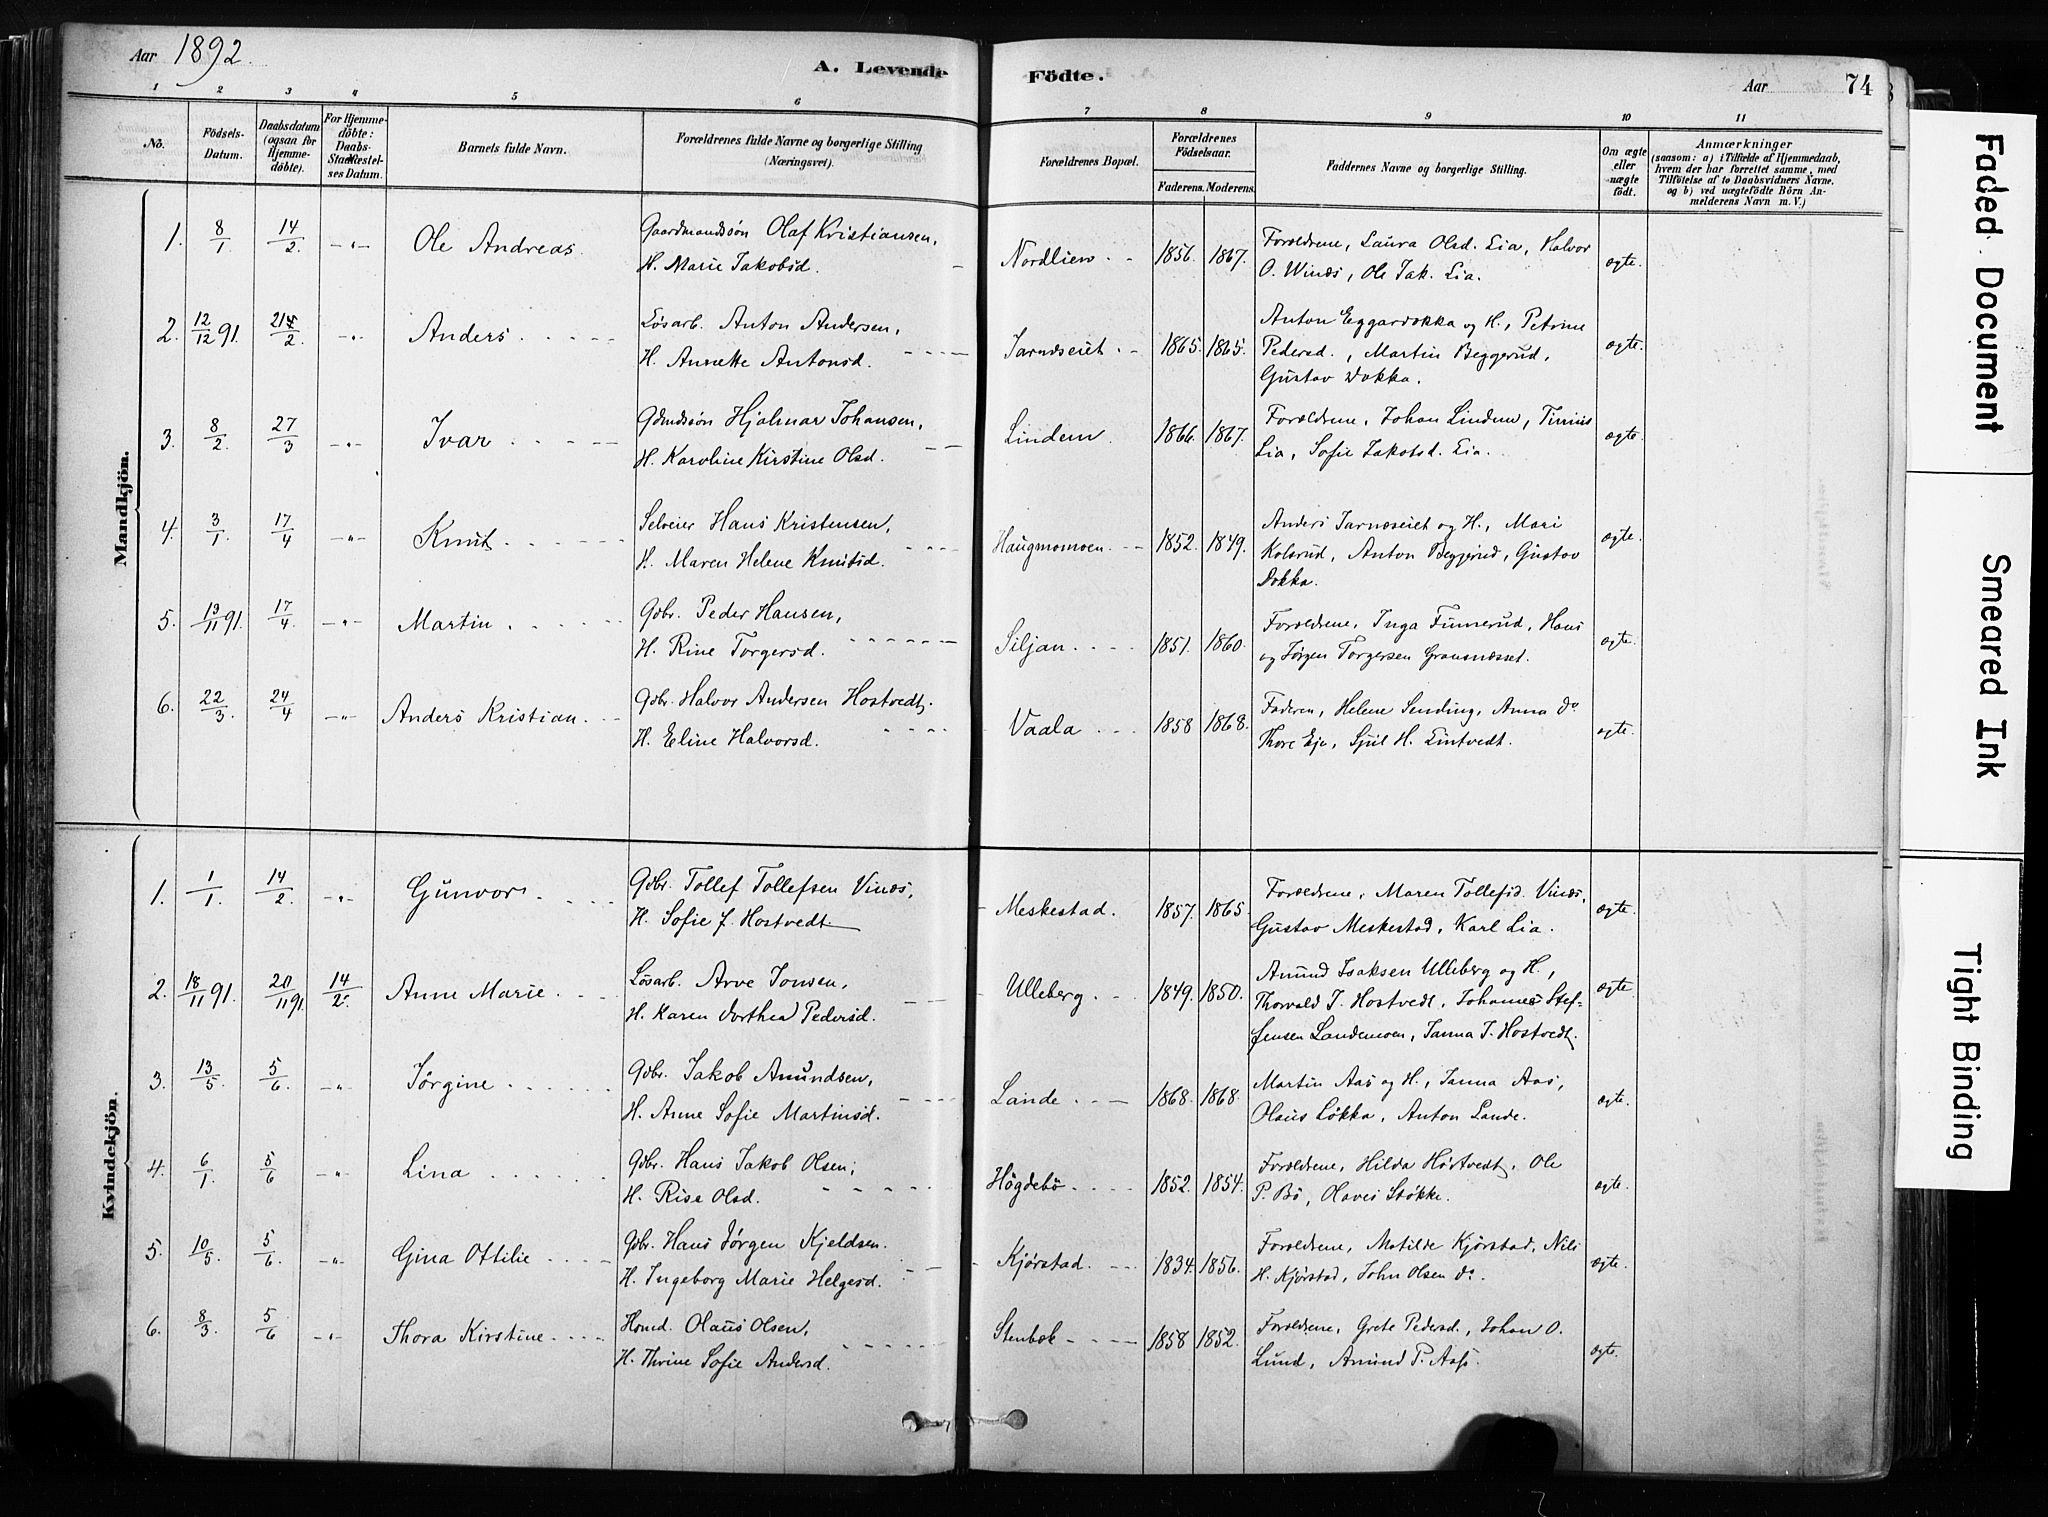 Aar 1892.
A. Levende Födte.
Aar
74
1 2 3 4 5 6 7 8 9 10 11
No.
Födsels-
Datum.
Daabsdatum
(ogsaa for
Hjemme-
döbte).
For Hjemme-
döbte:
Daabs-
Stadfæstel-
ses Datum.
Barnets fulde Navn.
Forældrenes fulde Navne og borgerlige Stilling
(Næringsvei).
Forældrenes Bopæl.
Forældrenes
Födselsaar.
Faderens. Moderens.
Faddernes Navne og borgerlige Stilling.
Om ægte
eller
uægte
födt.
Anmærkninger
(saasom: a) i Tilfælde af Hjemmedaab,
hvem der har forrettet samme, med
Tilföielse af to Daabsvidners Navne,
og b) ved uægtefödte Börn An-
melderens Navn m. V.)
Mandkjön.
1. 8/1 14/2 -"- Ole Andreas. Gaardmandssøn Olaf Kristiansen,
H. Marie Jakobsd. Nordlien 1856. 1867. Forældrene, Laura Olsd. Lia, Halvor
O. Winæs, Ole Jak. Lia. ægte.
2. 12/12 91. 21/2 -"- Anders Løsarb. Anton Andersen,
H. Annette Antonsd. Jarndseiet 1865. 1865. Anton Eggardokka og H., Petrine
Pedersd., Martin Beggerud,
Gustav Dokka. ægte.
3. 8/2 27/3 -"- Ivar Gdmdssøn Hjalmar Johansen,
H. Karoline Kirstine Olsd. Linden 1866. 1867. Forældrene, Johan Linden, Tinius
Lia, Sofie Jakobsd. Lia. ægte.
4. 3/1 17/4 -"- Knut Selveier Hans Kristensen,
H. Maren Helene Knutsd. Haugmomoen 1852. 1849. Anders Jarnæseiet og H., Mari
Kolsrud, Anton Beggerud, Gustav
Dokka. ægte.
5. 13/11 91. 17/4 -"- Martin Gdbr. Peder Hansen,
H. Rine Torgersd. Siljan 1851. 1860. Forældrene, Inga Finnerud, Hans
og Jørgen Torgersen Granæsset. ægte.
6. 22/3. 24/4 -"- Anders Kristian. Gdbr. Halvor Andersen Hostvedt,
H. Eline Halvorsd. Vaala 1858 1868. Faderen, Helene Sending, Anna do
Thore Eje, Spil H. Lintvedt. ægte.
Kvindekjön.
1. 1/1. 14/2. -"- Gunvor Gdbr. Tollef Tollefsen Vinæs,
H. Sofie J. Hostvedt Meskestad. 1857. 1865. Forældrene, Maren Tollefsd. Vinæs,
Gustav Meskestad, Karl Lia. ægte.
2. 18/11 91. 20/11 91. 14/2. Anne Marie Løsarb. Arve Jonsen,
H. Karen Dorthea Pedersd. Ulleberg 1849. 1850. Amund Isaksen Ulleberg og H.,
Thorvald J. Hostvedt, Johannes Stef-
fensen Landemoen, Janna J. Hostvedt. ægte.
3. 13/5. 5/6 -"- Jørgine Gdbr. Jakob Amundsen,
H. Anne Sofie Martinsd. Lande 1868. 1868. Martin Aas og H., Janna Aas,
Olaus Løkka, Anton Lande. ægte.
4. 6/1. 5/6 -"- Lina Gdbr. Hans Jakob Olsen,
H. Rise Olsd. Högdebö 1852. 1854. Forældrene, Hilda Høstvedt, Ole
P. Bö, Olaves Støkke. ægte.
5. 10/5 5/6. -"- Gina Ottilie Gdbr. Hans Jørgen Kjeldsen.
H. Ingeborg Marie Helgesd. Kjørstad. 1834. 1856. Forældrene, Matilde Kjørstad, Nils
H. Kjørstad, John Olsen do. ægte.
6. 8/3. 5/6 -"- Thora Kirstine Hmd. Olaus Olsen,
H. Thrine Sofie Andersd. Stenbæk 1858 1852. Forældrene, Grete Pedersd., Johan O.
Lund, Amund P. Aas. ægte.
Faded Document
Smeared Ink
Tight Binding